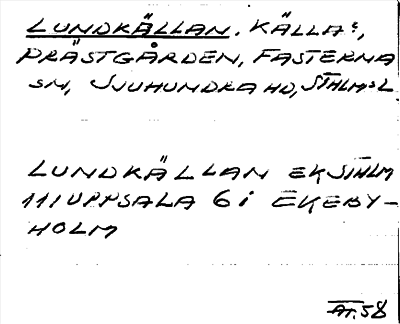 LUNDKÄLLAN. KÄLLA:,
PRÄSTGÅRDEN, FASTERNA
SN, SJUHUNDRA HD, STHLMS L
LUNDKÄLLAN EK STHLM
111 UPPSALA 6 i EKEBY-
HOLM
AT. 58